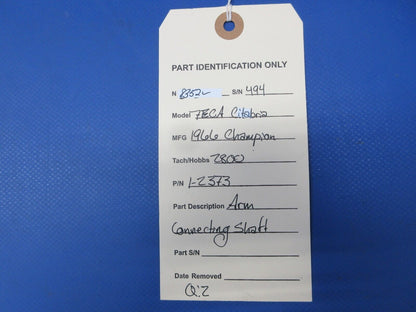 PART IDENTIFICATION ONLY
N 8352 S/N 494
Model 7ECA Citabria
MFG 1966 Champion
Tach/Hobbs 2800
P/N 1-2373
Part Description Arm
Connecting Shaft
Part S/N
Date Removed
Q:2